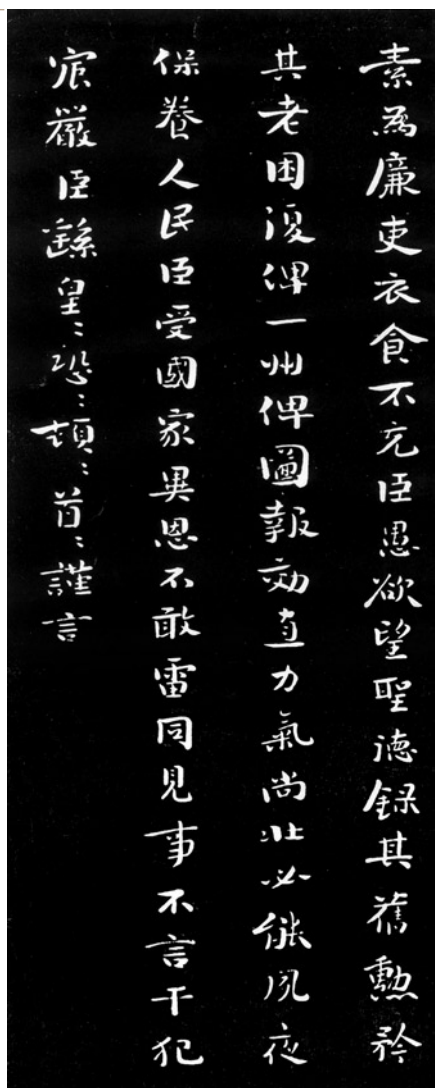 素為廉吏衣食不充臣愚欲望聖德録其舊勳矜
其老困復俾一州俾圖報效直力氣尚壯必能夙夜
保養人民臣受國家異恩不敢雷同見事不言干犯
宸嚴臣繇皇〻恐〻頓〻首〻謹言